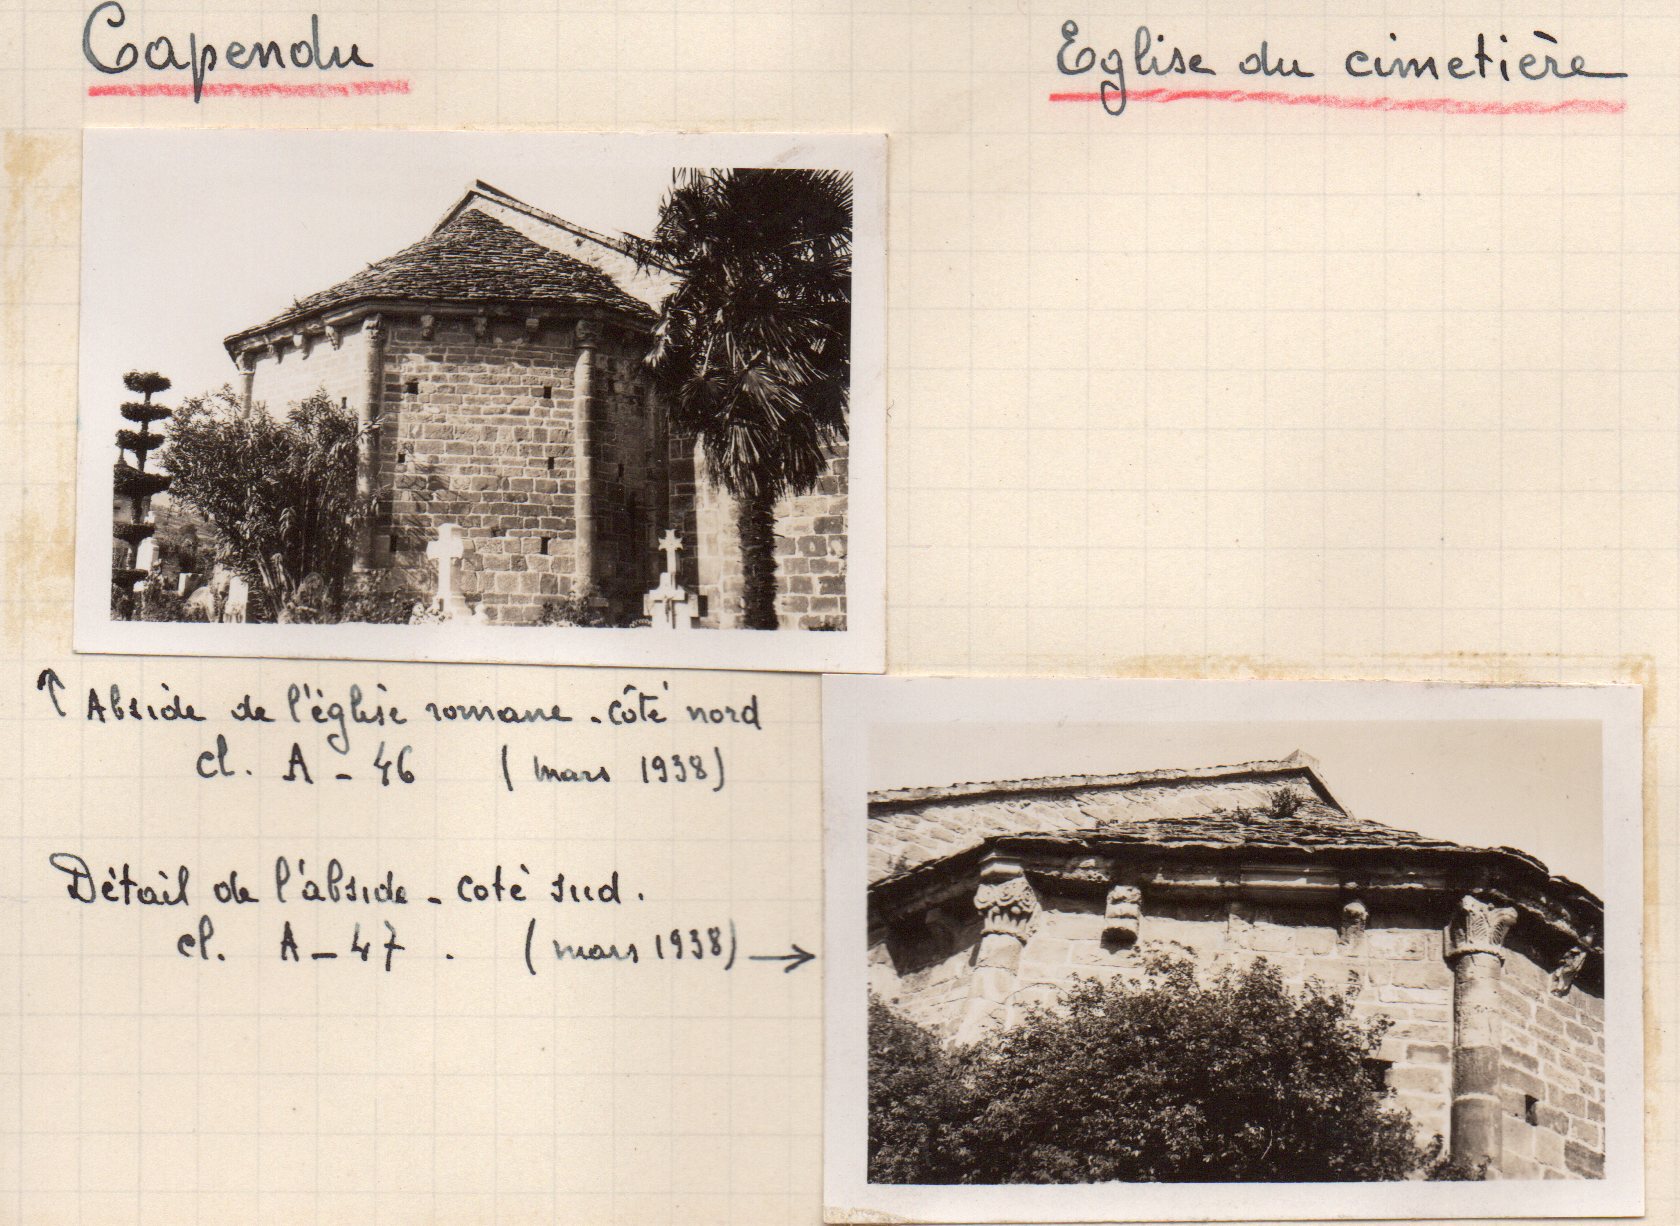 Capendu
Eglise du cimetière
↑ Abside de l'église romane - côté nord
cl. A - 46 (mars 1938)
Détail de l'abside - coté sud.
cl. A - 47 . (mars 1938) →